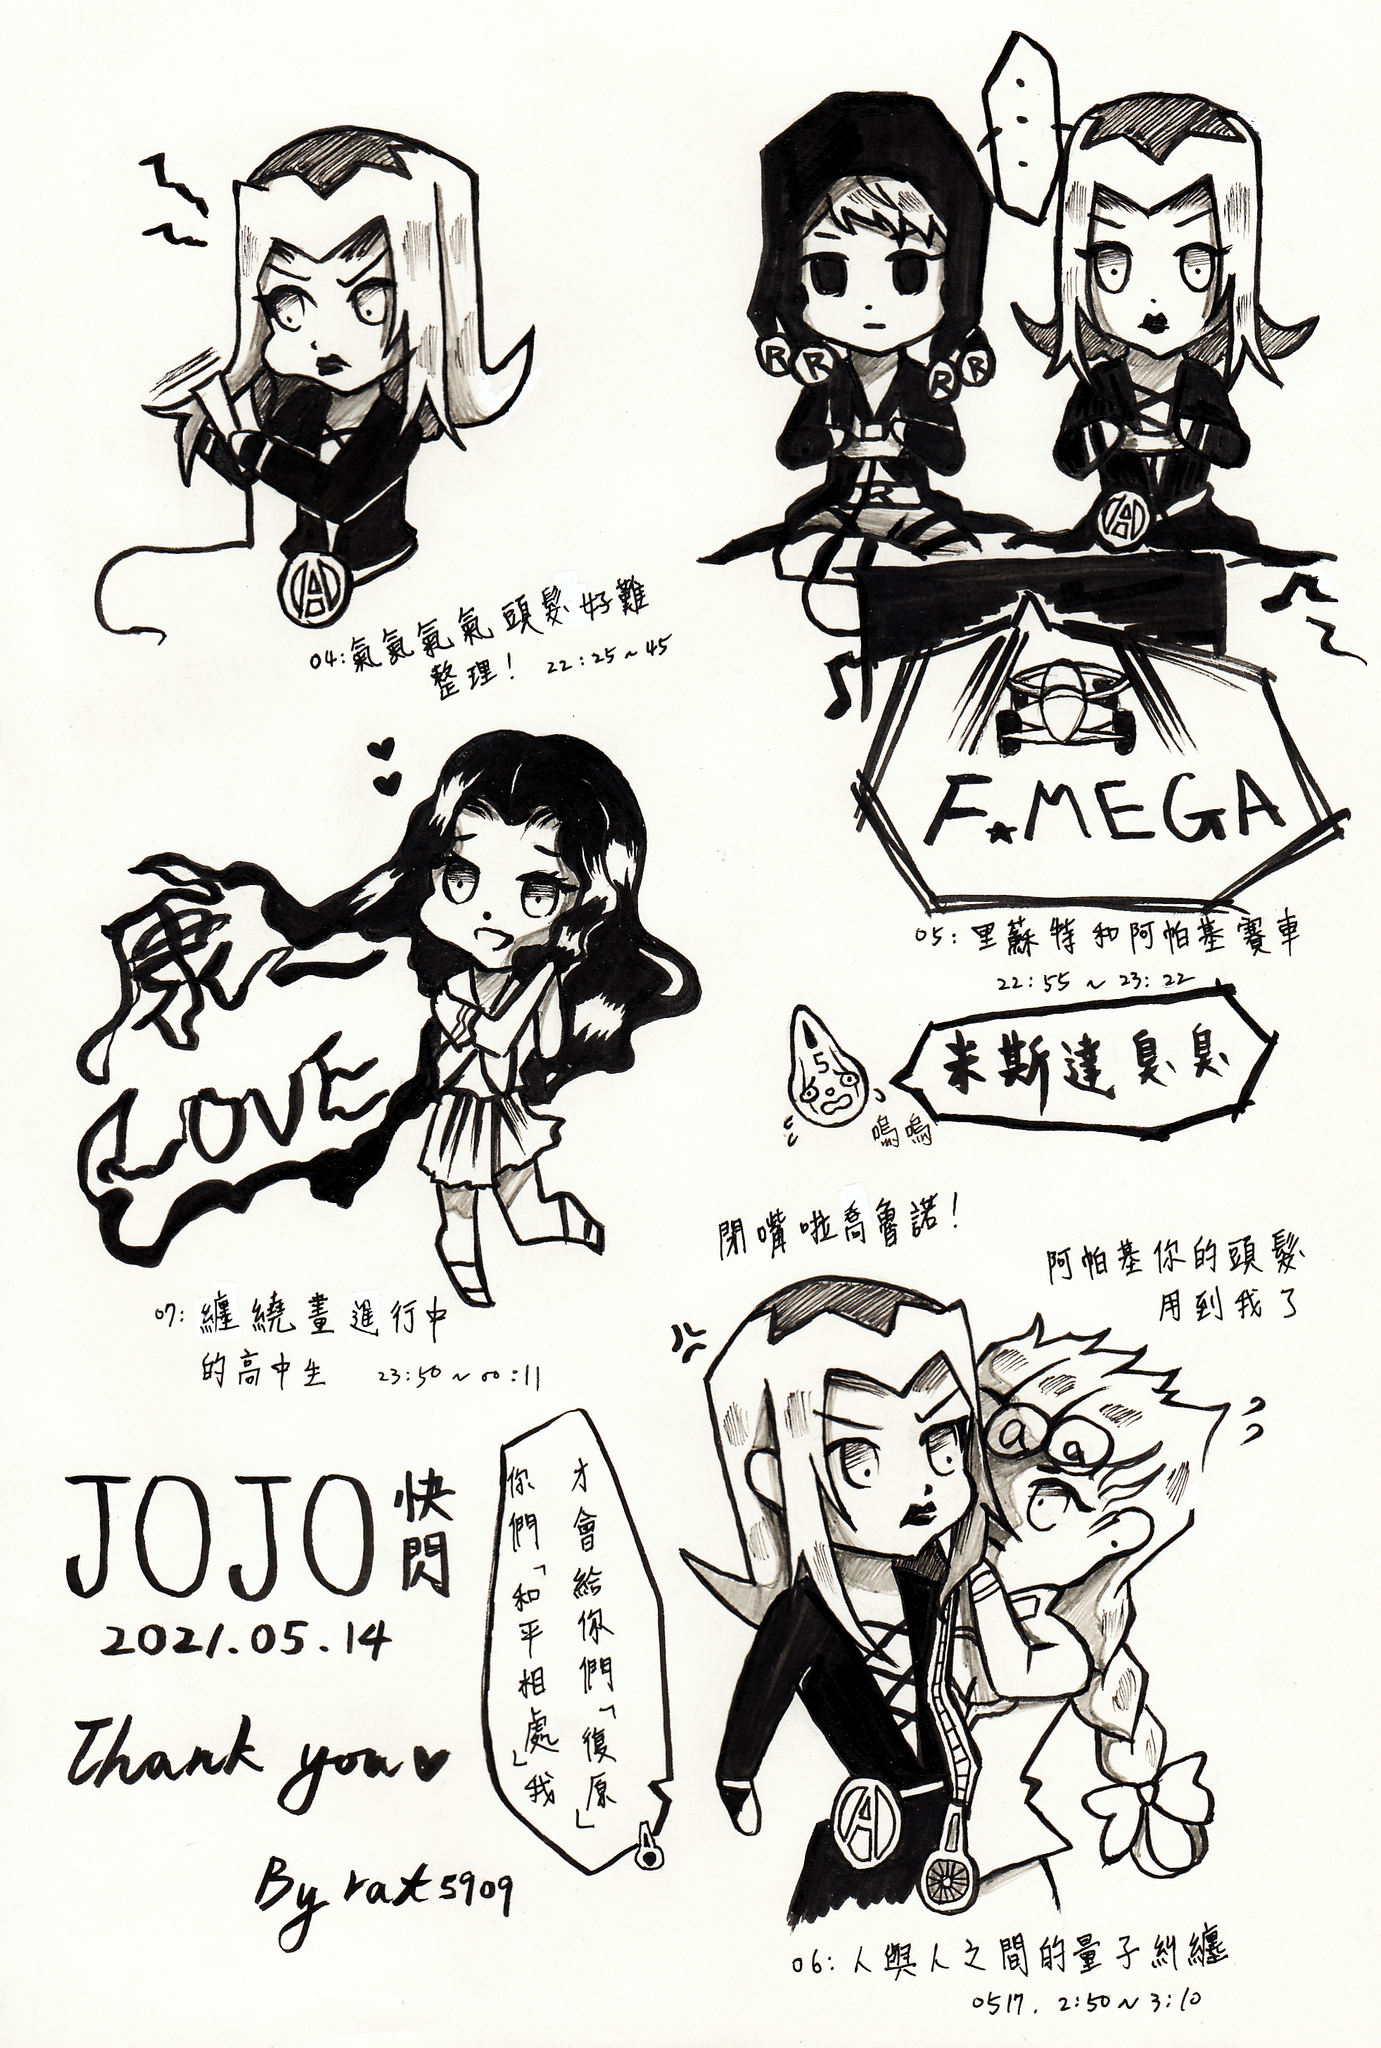 04:氣氣氣氣頭髮好難
整理! 22:25~45
R R R R
R
A
A
F★MEGA
05:里蘇特和阿帕基賽車
22:55~23:22
5
米斯達臭臭
嗚嗚
康一
LOVE
07:纏繞畫進行中
的高中生 23:50~00:11
閉嘴啦喬魯諾!
阿帕基你的頭髮
用到我了
a a
A
才會給你們「復原」
你們「和平相處」我
JOJO快閃
2021.05.14
Thank you♥
By rat5909
06:人與人之間的量子糾纏
0517. 2:50~3:10